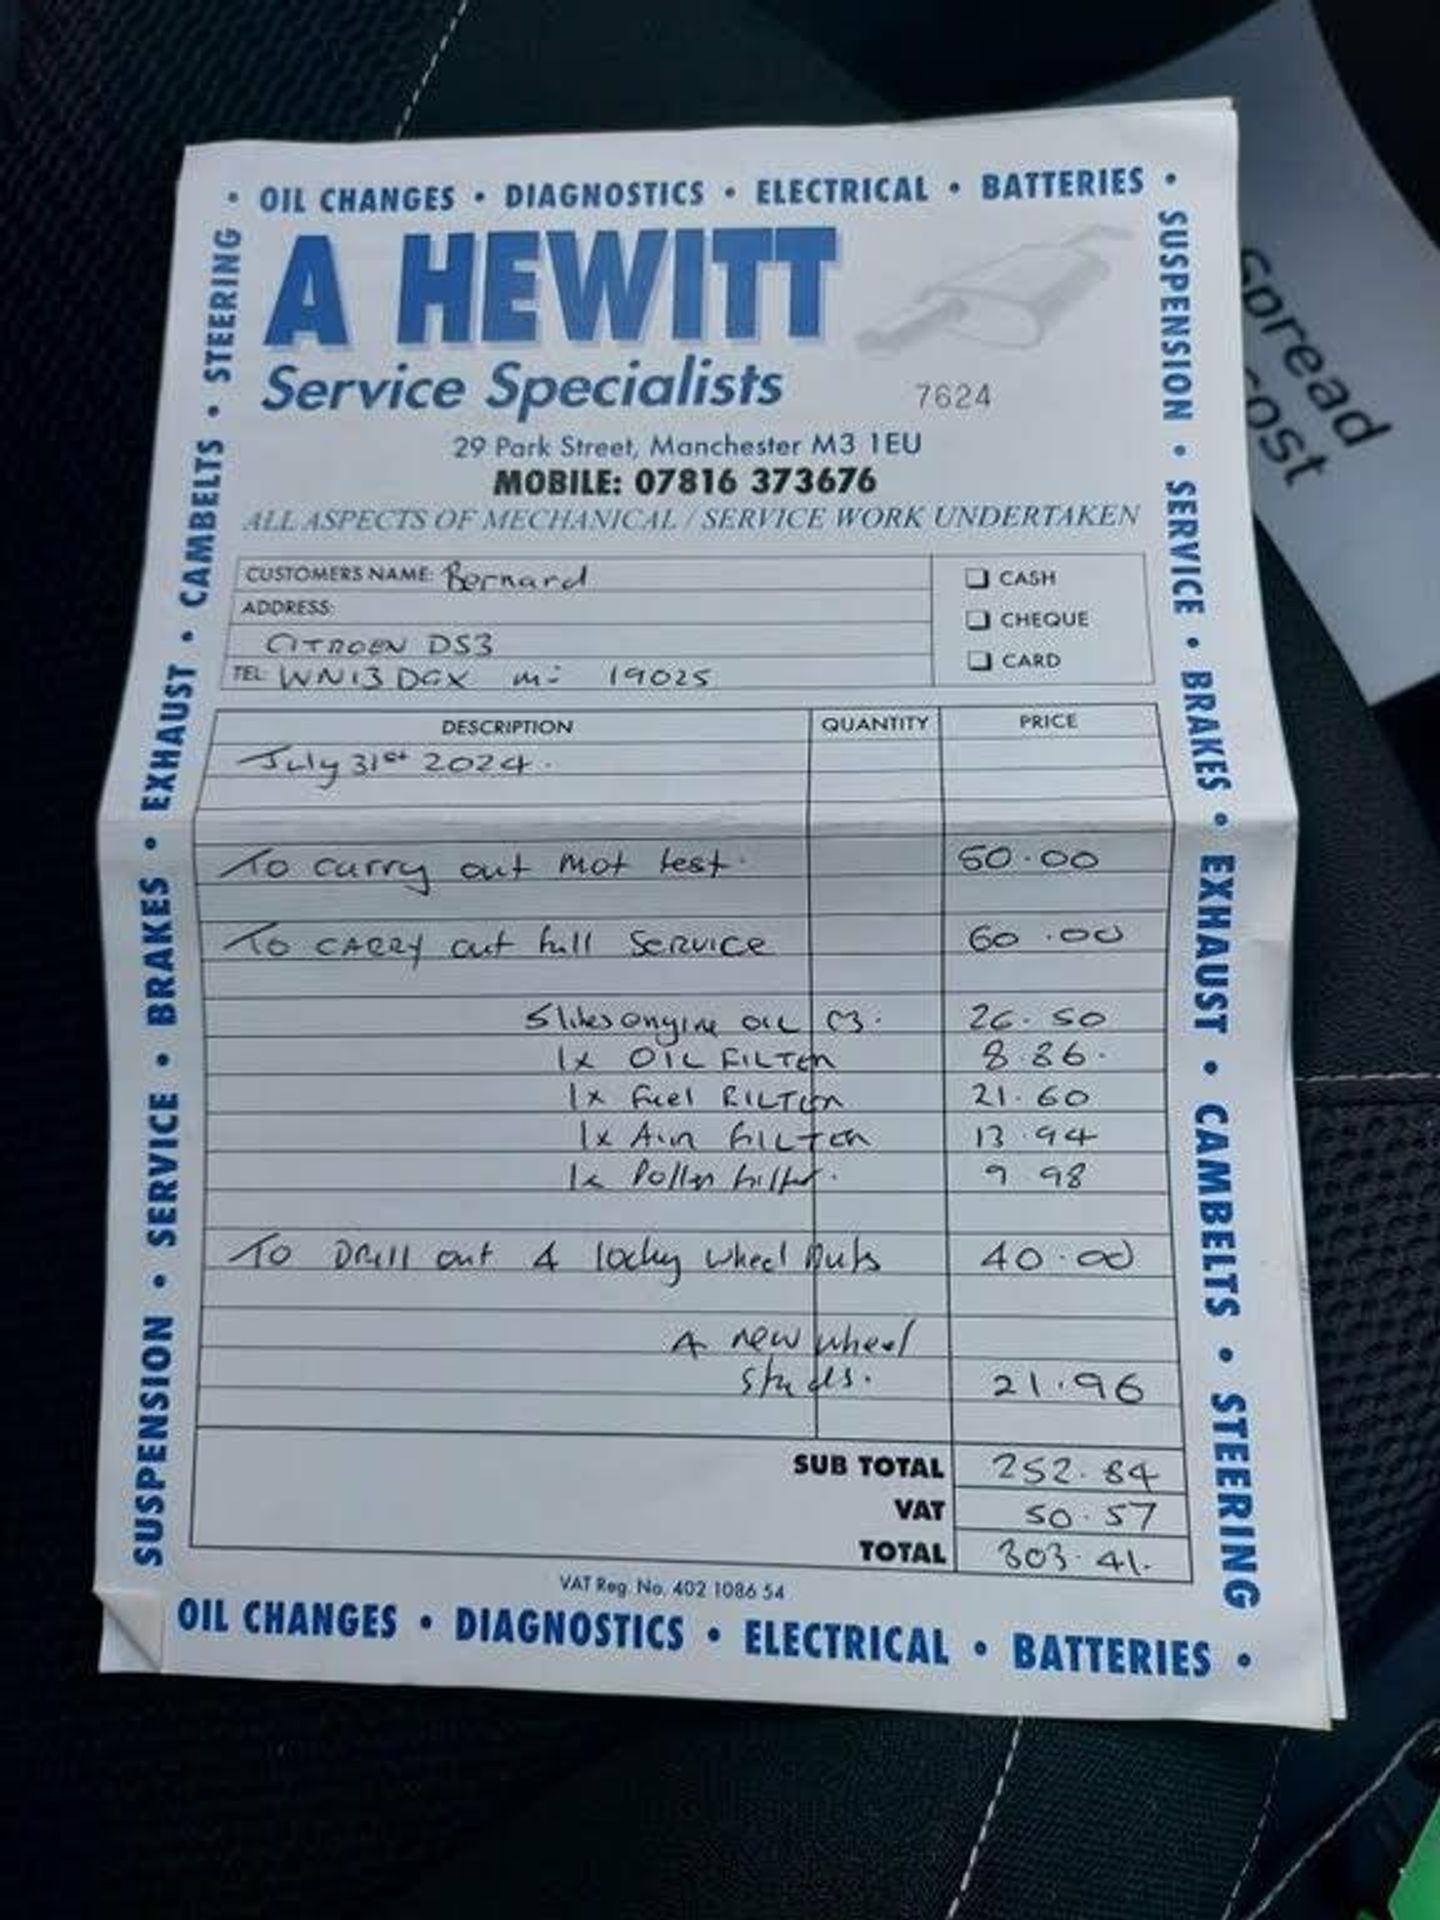 • OIL CHANGES • DIAGNOSTICS • ELECTRICAL • BATTERIES •
SUSPENSION • SERVICE • BRAKES • EXHAUST • CAMBELTS • STEERING
SUSPENSION • SERVICE • BRAKES • EXHAUST • CAMBELTS • STEERING
A HEWITT
Service Specialists
7624
29 Park Street, Manchester M3 1EU
MOBILE: 07816 373676
ALL ASPECTS OF MECHANICAL / SERVICE WORK UNDERTAKEN
CUSTOMERS NAME: Bernard
ADDRESS:
CITROEN DS3
TEL: WN13 DGX m:- 19025
CASH
CHEQUE
CARD
DESCRIPTION QUANTITY PRICE
July 31st 2024.
To carry out mot test. 50.00
To CARRY out full SERVICE 60.00
5 litres engine OIL C3. 26.50
1x OIL FILTER 8.86.
1x fuel FILTER 21.60
1x Air FILTER 13.94
1x Pollen filter. 9.98
To Drill out 4 locking wheel nuts 40.00
4 new wheel
studs. 21.96
SUB TOTAL 252.84
VAT 50.57
TOTAL 303.41.
VAT Reg. No. 402 1086 54
OIL CHANGES • DIAGNOSTICS • ELECTRICAL • BATTERIES •
spread
cost